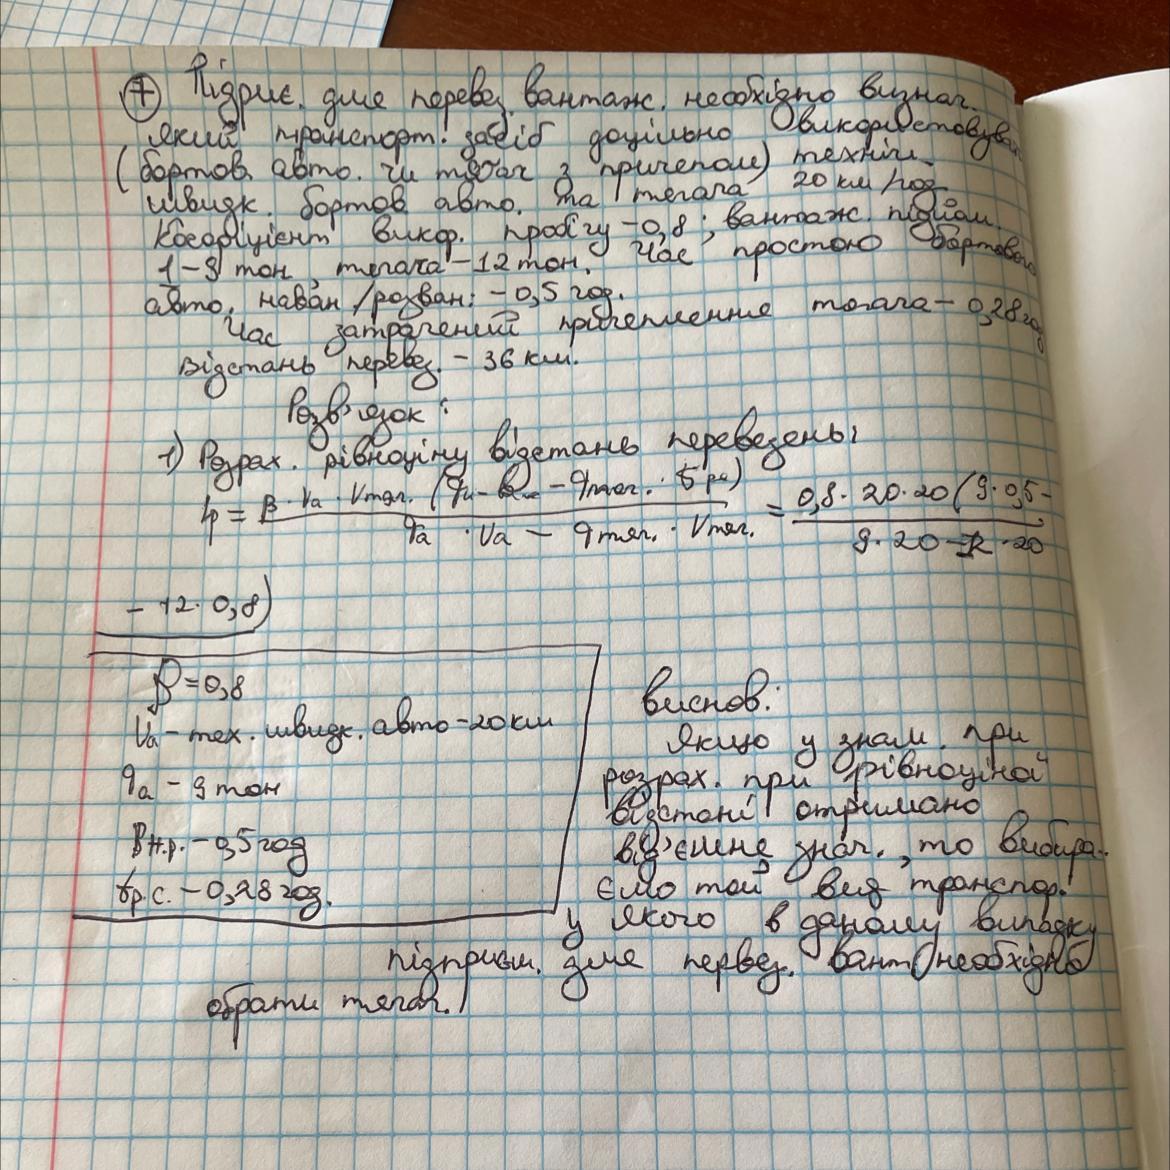 7 Підприє. для перевез. вантаж. необхідно визнач.
який транспорт. засіб доцільно використовуват
(бортов. авто. чи тягач з причепом) технічн.
швидк. бортов авто. та тягача 20 км/год
Коефіцієнт викор. пробігу - 0,8; вантаж. підйом.
1 - 9 тон, тягача - 12 тон. Час простою бортового
авто. наван/розван: - 0,5 год.
Час затрачений причеплення тягача - 0,28 год
Відстань перевез. - 36 км.
Розв'язок:
1) Розрах. рівноціну відстань перевезень:
= β · Va · Vтяг. ( - qтяг. · ) / qa · Va - qтяг. · Vтяг. = 0,8 · 20 · 20 (9 · 0,5 - / 9 · 20 - 12 · 20
- 12 · 0,8)
β = 0,8
Va - тех. швидк. авто - 20 км
qa - 9 тон
н.р. - 0,5 год
р.с. - 0,28 год.
виснов:
якщо у знам. при
розрах. при рівноціной
відстані отримано
від'ємне знач., то вибира-
ємо той вид транспор.
у якого в даному випадку
підприєм. для перевез. вант необхідно
обрати тягач.